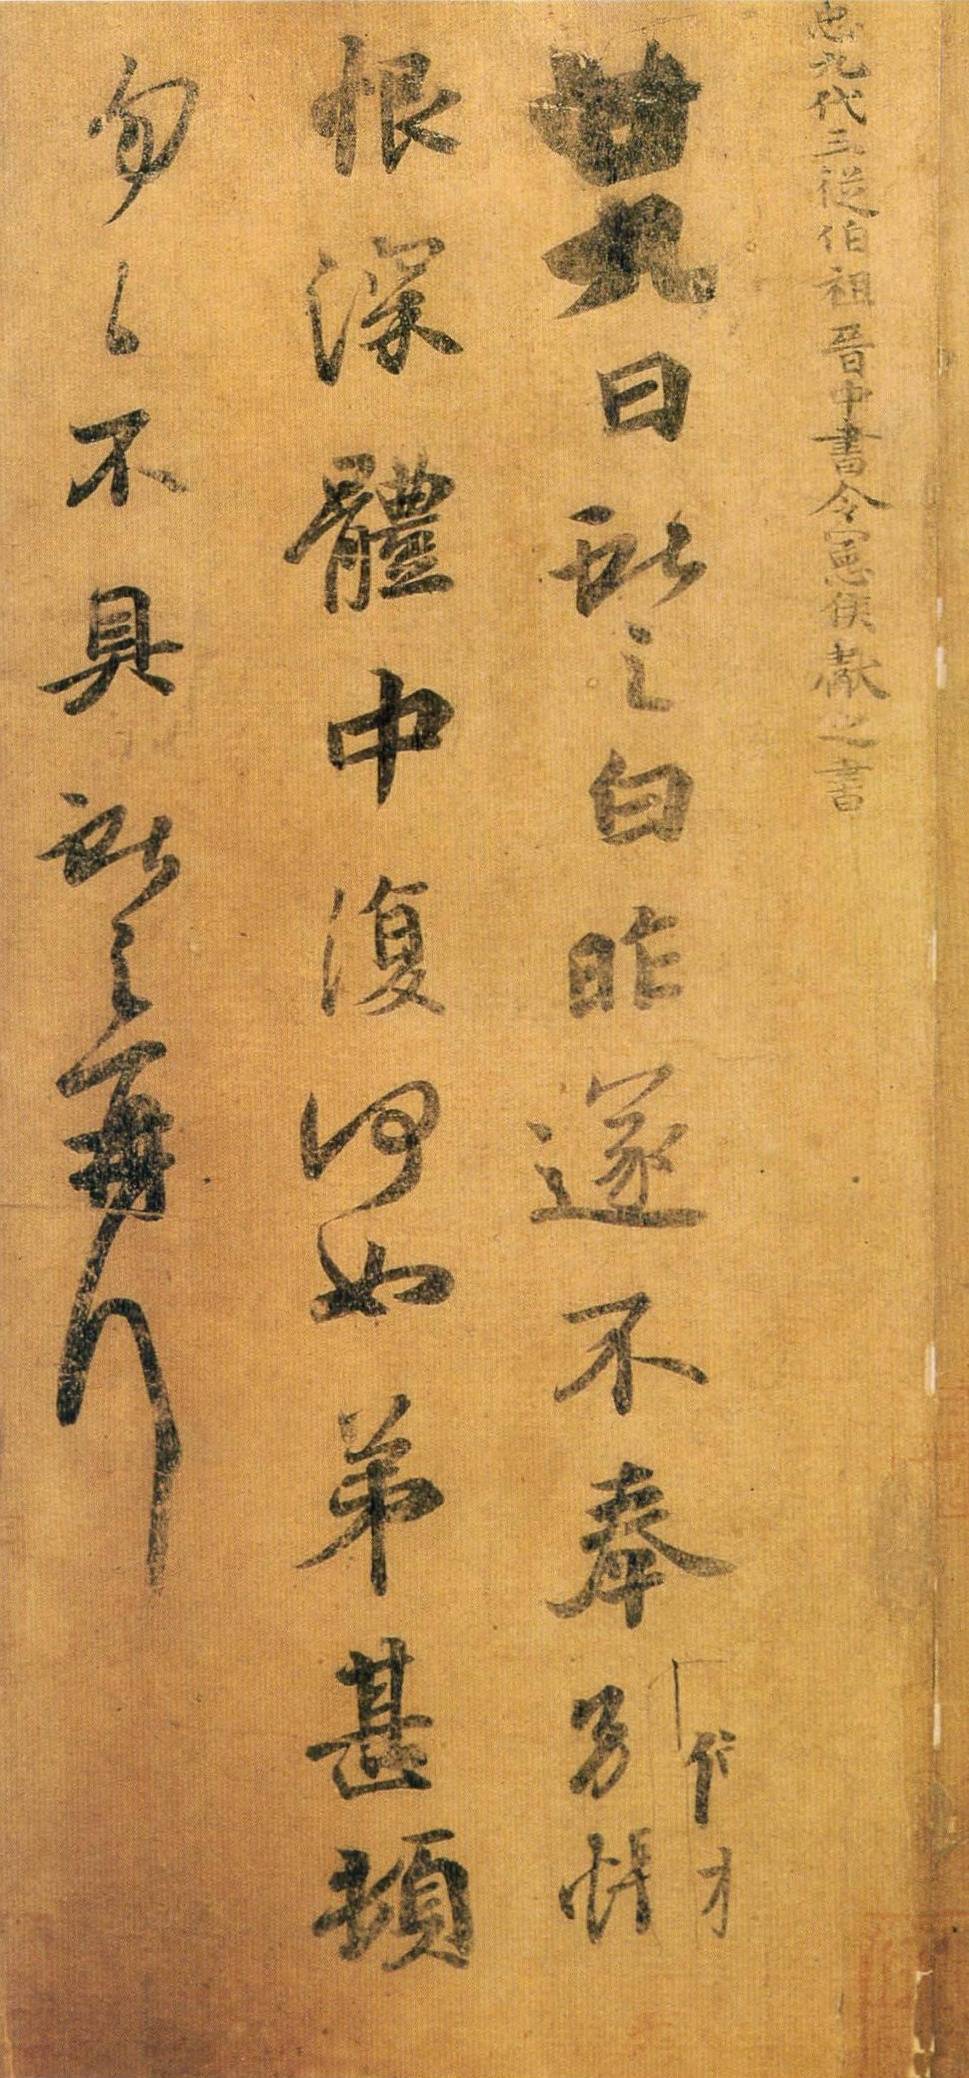 忠九代三從伯祖晉中書令憲侯獻之書
廿九日獻之白昨遂不奉別悵
恨深體中復何如弟甚頓
匆々不具獻之再拜